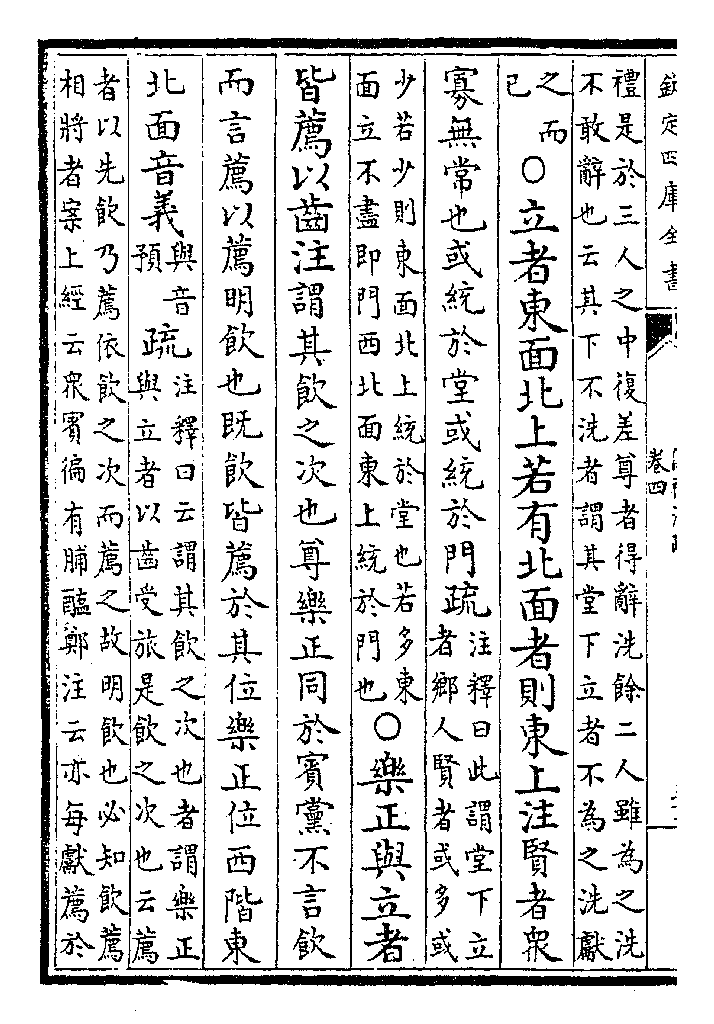 欽定四庫全書
卷四
禮是於三人之中復差尊者得辭洗餘二人雖為之洗
不敢辭也云其下不洗者謂其堂下立者不為之洗獻
之而
已
○立者東面北上若有北面者則東上注賢者衆
寡無常也或統於堂或統於門疏
注釋曰此謂堂下立
者鄉人賢者或多或
少若少則東面北上統於堂也若多東
面立不盡即門西北面東上統於門也
○樂正與立者
皆薦以齒注謂其飲之次也尊樂正同於賓黨不言飲
而言薦以薦明飲也既飲皆薦於其位樂正位西階東
北面音義
與音
預
疏
注釋曰云謂其飲之次也者謂樂正
與立者以齒受旅是飲之次也云薦
者以先飲乃薦依飲之次而薦之故明飲也必知飲薦
相將者案上經云衆賓徧有脯醢鄭注云亦每獻薦於